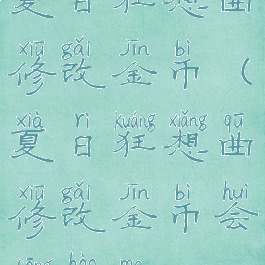 夏日狂想曲
xiū gǎi jīn bì
修改金币（
xià rì kuáng xiǎng qū
夏日狂想曲
xiū gǎi jīn bì huì
修改金币会